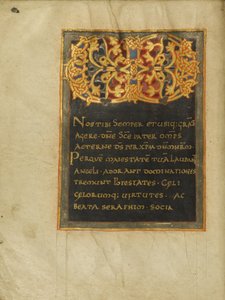 NOS TIBI SEMPER ET UBIQ; GRAS
AGERE. DNE SCE PATER OMPS
AETERNE DS PER XPM DNM NRM
PER QUE MAIESTATE TUA LAUDANT
ANGELI. ADORANT DOMINATIONES
TREMUNT POTESTATES. CELI
CELORUMQ; UIRTUTES. AC
BEATA SERAPHIM. SOCIA